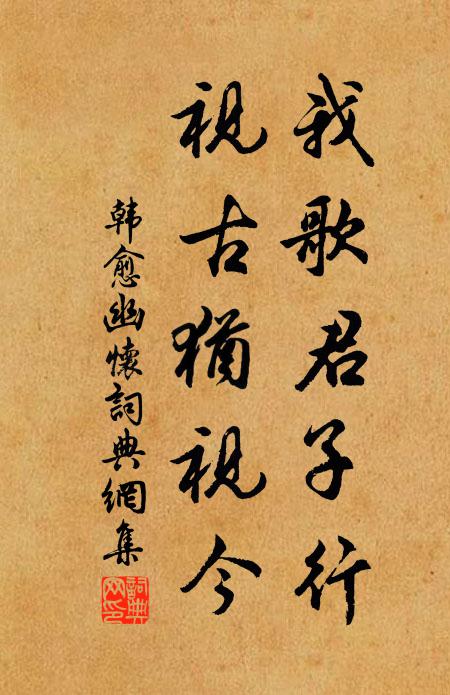 我歌君子行
視古猶視今
韓愈幽懷詞典網集
詞典網印